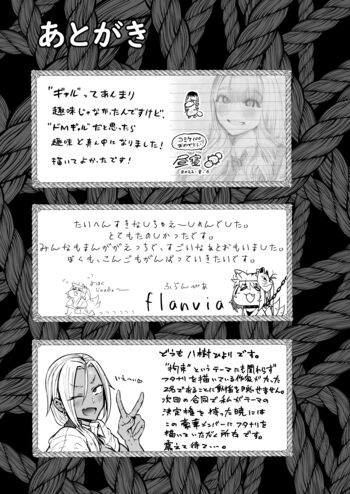 あとがき
"ギャル"ってあんまり
趣味じゃなかったんですけど、
"ドMギャル"だと思ったら
趣味ど真ん中になりました!
描いてよかったです!
2022.8.6
たいへんすきなしちゅえーしょんでした。
とてもたのしかったです。
みんなもまんががえっちで、すごいなぁとおもいました。
ぼくも、こんごもがんばっていきたいです。
ふらんゔぃあ
flanvia
いぇ〜い♡
どうも八樹ひよりです。
"拘束"というテーマにも関わらず
フタナリを描いている作家がたった
2名であることに動揺を隠せません。
次回の合同で私がテーマの
決定権を持った暁には
この豪華メンバーにフタナリを
描いていただく所存です。
震えて待て…。